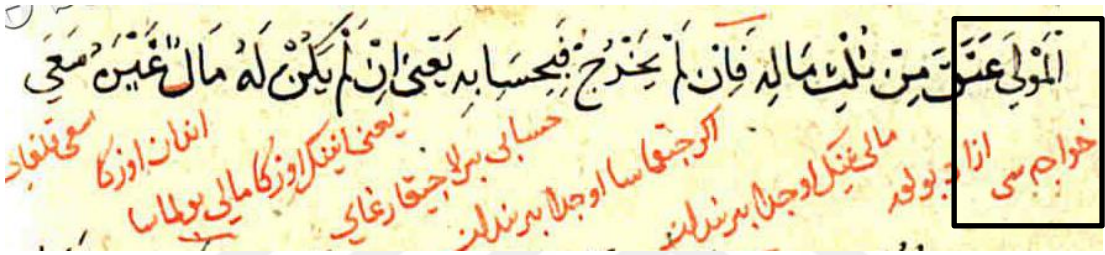 اَلْمَوْلَى عَتَقَ مِنْ ثُلُثِ مَالِهِ فَاِنْ لَمْ يَخْرُجْ فَبِحِسَابِهِ يَعْنِى اِنْ لَمْ يَكُنْ لَهُ مَالٌ غَيْرَهُ سَعَى
خواجه سى ازاد بولور مالى نينك اوجدا بريندان اكر جيقماسا اوجدا بريندان حسابى برلا جيقارغاى يعنى انينك اوزكا مالى بولماسا اندان اوزكا سعى قلغاى